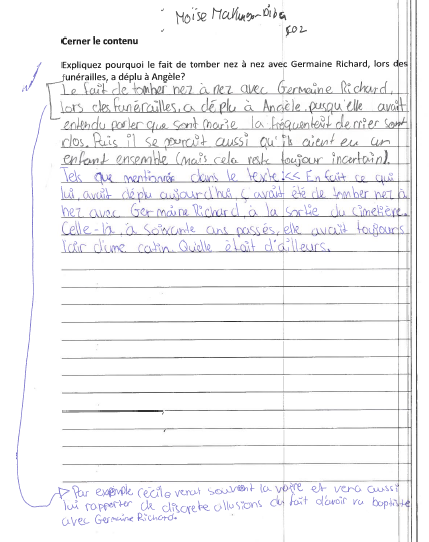 Moïse
502
Cerner le contenu
Expliquez pourquoi le fait de tomber nez à nez avec Germaine Richard, lors des
funérailles, a déplu à Angèle?
Le fait de tomber nez à nez avec Germaine Richard,
lors des funérailles, a déplu à Angèle, pusqu'elle avait
entendu parler que sont marie la fréquentait derrier sont
dos. Puis il se pourait aussi qu'ils aient eu un
enfant ensemble (mais cela reste toujour incertain).
Tels que mentionné dans le texte: << En fait ce qui
lui, avait déplu aujourd'hui, ç'avait été de tomber nez à
nez avec Germaine Richard, à la sortie du cimetière.
Celle-là, à soixante ans passés, elle avait toujours
l'air d'une catin. Qu'elle était d'ailleurs.
Par exemple cécile venai souvent la voire et vena aussi
lui rapporter de discrete allusions du fait d'avoir vu baptiste
avec Germaine Richard.